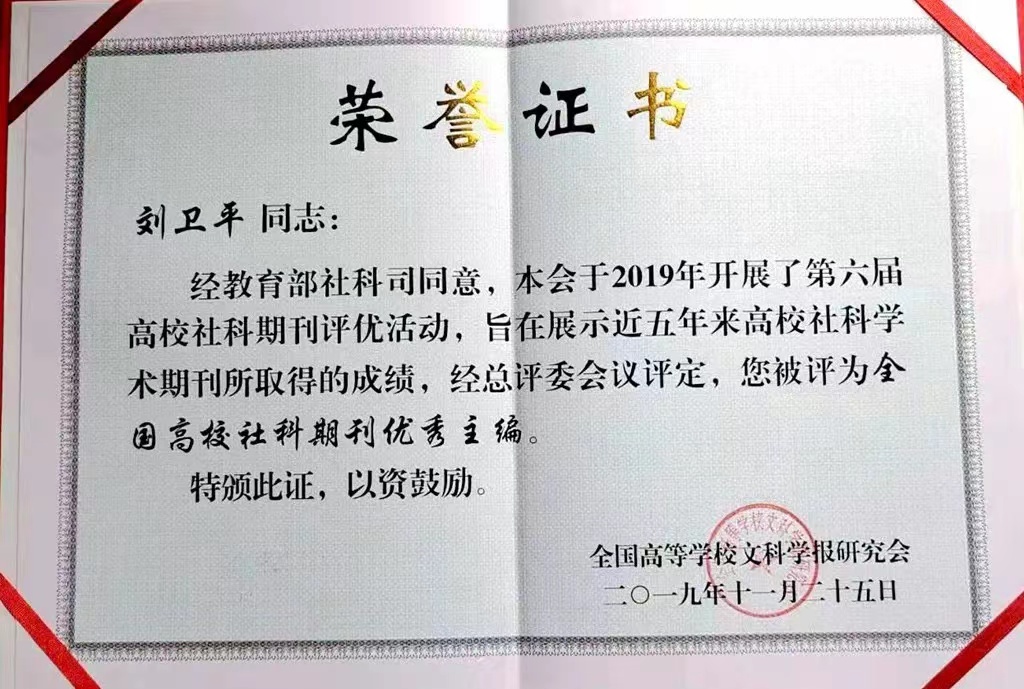 荣誉证书
刘卫平 同志：
经教育部社科司同意，本会于2019年开展了第六届
高校社科期刊评优活动，旨在展示近五年来高校社科学
术期刊所取得的成绩，经总评委会议评定，您被评为全
国高校社科期刊优秀主编。
特颁此证，以资鼓励。
全国高等学校文科学报研究会
二〇一九年十一月二十五日